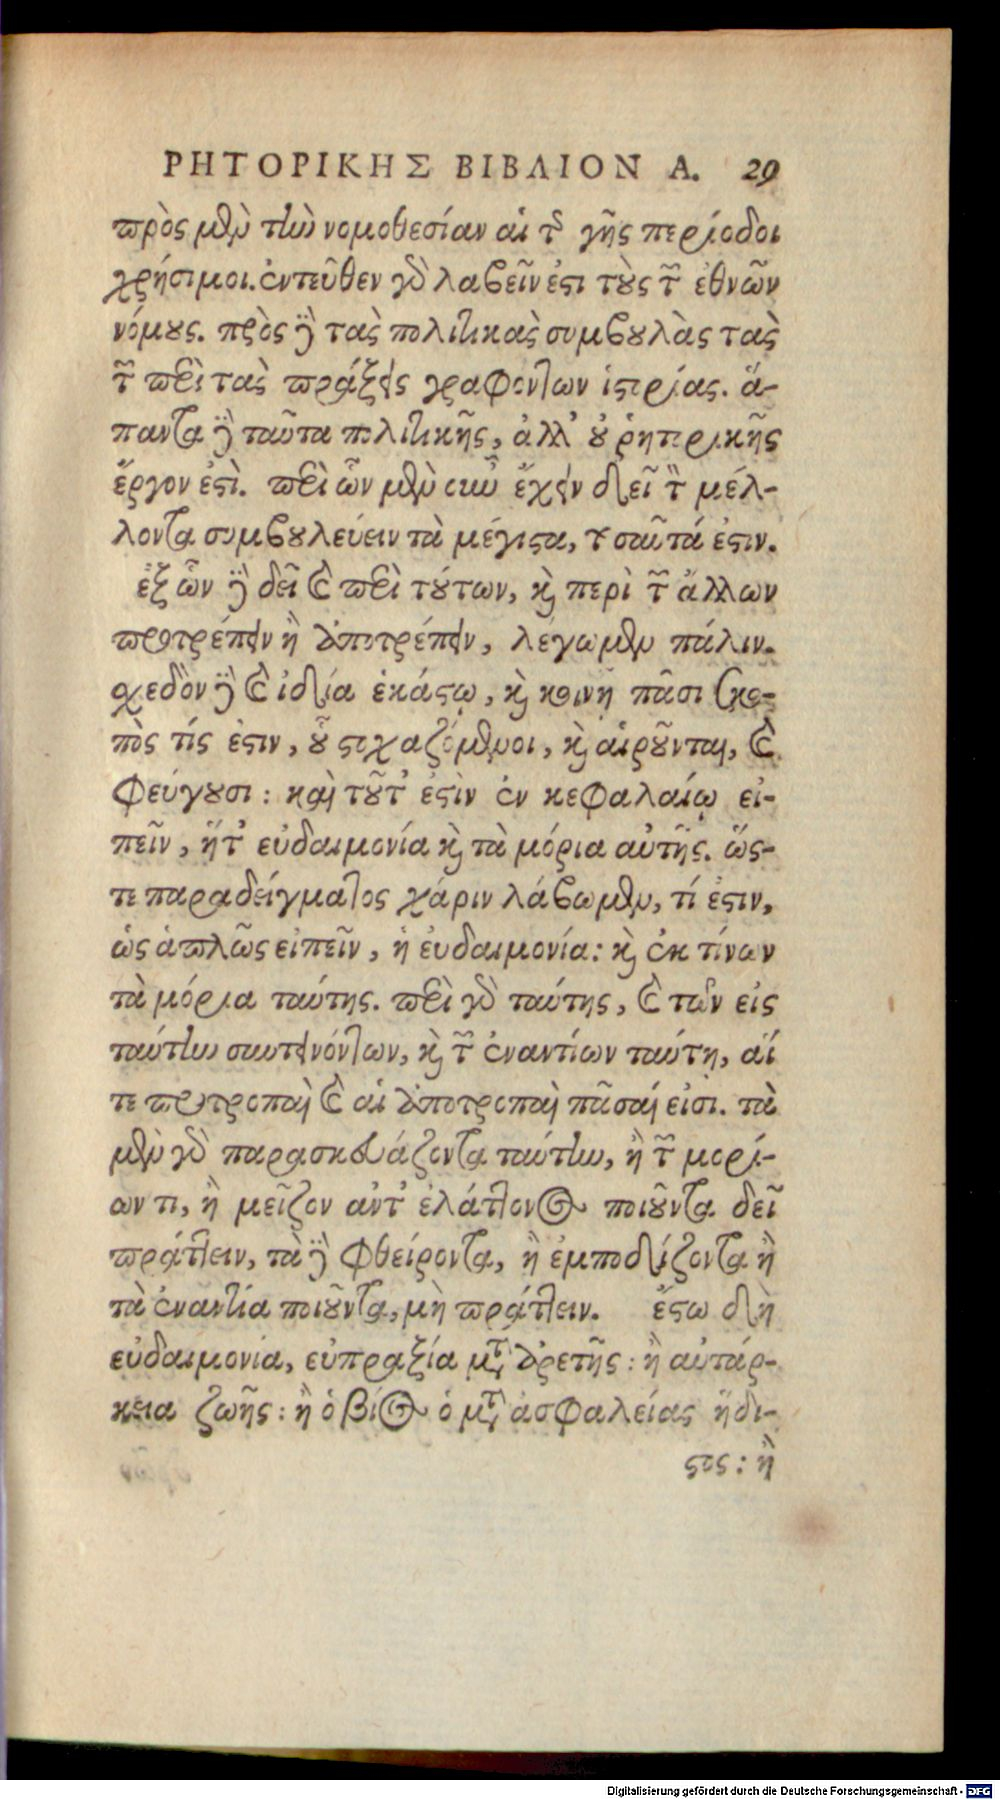 ΡΗΤΟΡΙΚΗΣ ΒΙΒΛΙΟΝ Α. 29
πρὸς μὲν τὴν νομοθεσίαν αἱ τῆς γῆς περίοδοι
χρήσιμοι. ἐντεῦθεν γὰρ λαβεῖν ἐστι τοὺς τῶν ἐθνῶν
νόμους. πρὸς δὲ τὰς πολιτικὰς συμβουλὰς τὰς
τῶν περὶ τὰς πράξεις γραφόντων ἱστορίας. ἅ-
παντα δὲ ταῦτα πολιτικῆς, ἀλλ' οὐ ῥητορικῆς
ἔργον ἐστί. περὶ ὧν μὲν οὖν ἔχειν δεῖ τὸν μέλ-
λοντα συμβουλεύειν τὰ μέγιστα, τοσαῦτά ἐστιν.
ἐξ ὧν δὲ δεῖ καὶ περὶ τούτων, καὶ περὶ τῶν ἄλλων
προτρέπειν ἢ ἀποτρέπειν, λέγωμεν πάλιν.
σχεδὸν δὲ καὶ ἰδία ἑκάστῳ, καὶ κοινῇ πᾶσι σκο-
πός τίς ἐστιν, οὗ στοχαζόμενοι, καὶ αἱροῦνται, καὶ
φεύγουσι: καὶ τοῦτ' ἐστὶν ἐν κεφαλαίῳ εἰ-
πεῖν, ἥτ' εὐδαιμονία καὶ τὰ μόρια αὐτῆς. ὥς-
τε παραδείγματος χάριν λάβωμεν, τί ἐστιν,
ὡς ἁπλῶς εἰπεῖν, ἡ εὐδαιμονία: καὶ ἐκ τίνων
τὰ μόρια ταύτης. περὶ γὰρ ταύτης, καὶ τῶν εἰς
ταύτην συντεινόντων, καὶ τῶν ἐναντίων ταύτῃ, αἵ
τε προτροπαὶ καὶ αἱ ἀποτροπαὶ πᾶσαί εἰσι. τὰ
μὲν γὰρ παρασκευάζοντα ταύτην, ἢ τῶν μορί-
ων τι, ἢ μεῖζον ἀντ' ἐλάττονος ποιοῦντα δεῖ
πράττειν, τὰ δὲ φθείροντα, ἢ ἐμποδίζοντα ἢ
τὰ ἐναντία ποιοῦντα, μὴ πράττειν. ἔστω δὴ
εὐδαιμονία, εὐπραξία μετ' ἀρετῆς: ἢ αὐτάρ-
κεια ζωῆς: ἢ ὁ βίος ὁ μετ' ἀσφαλείας ἥδι-
στος: ἢ
Digitalisierung gefördert durch die Deutsche Forschungsgemeinschaft - DFG